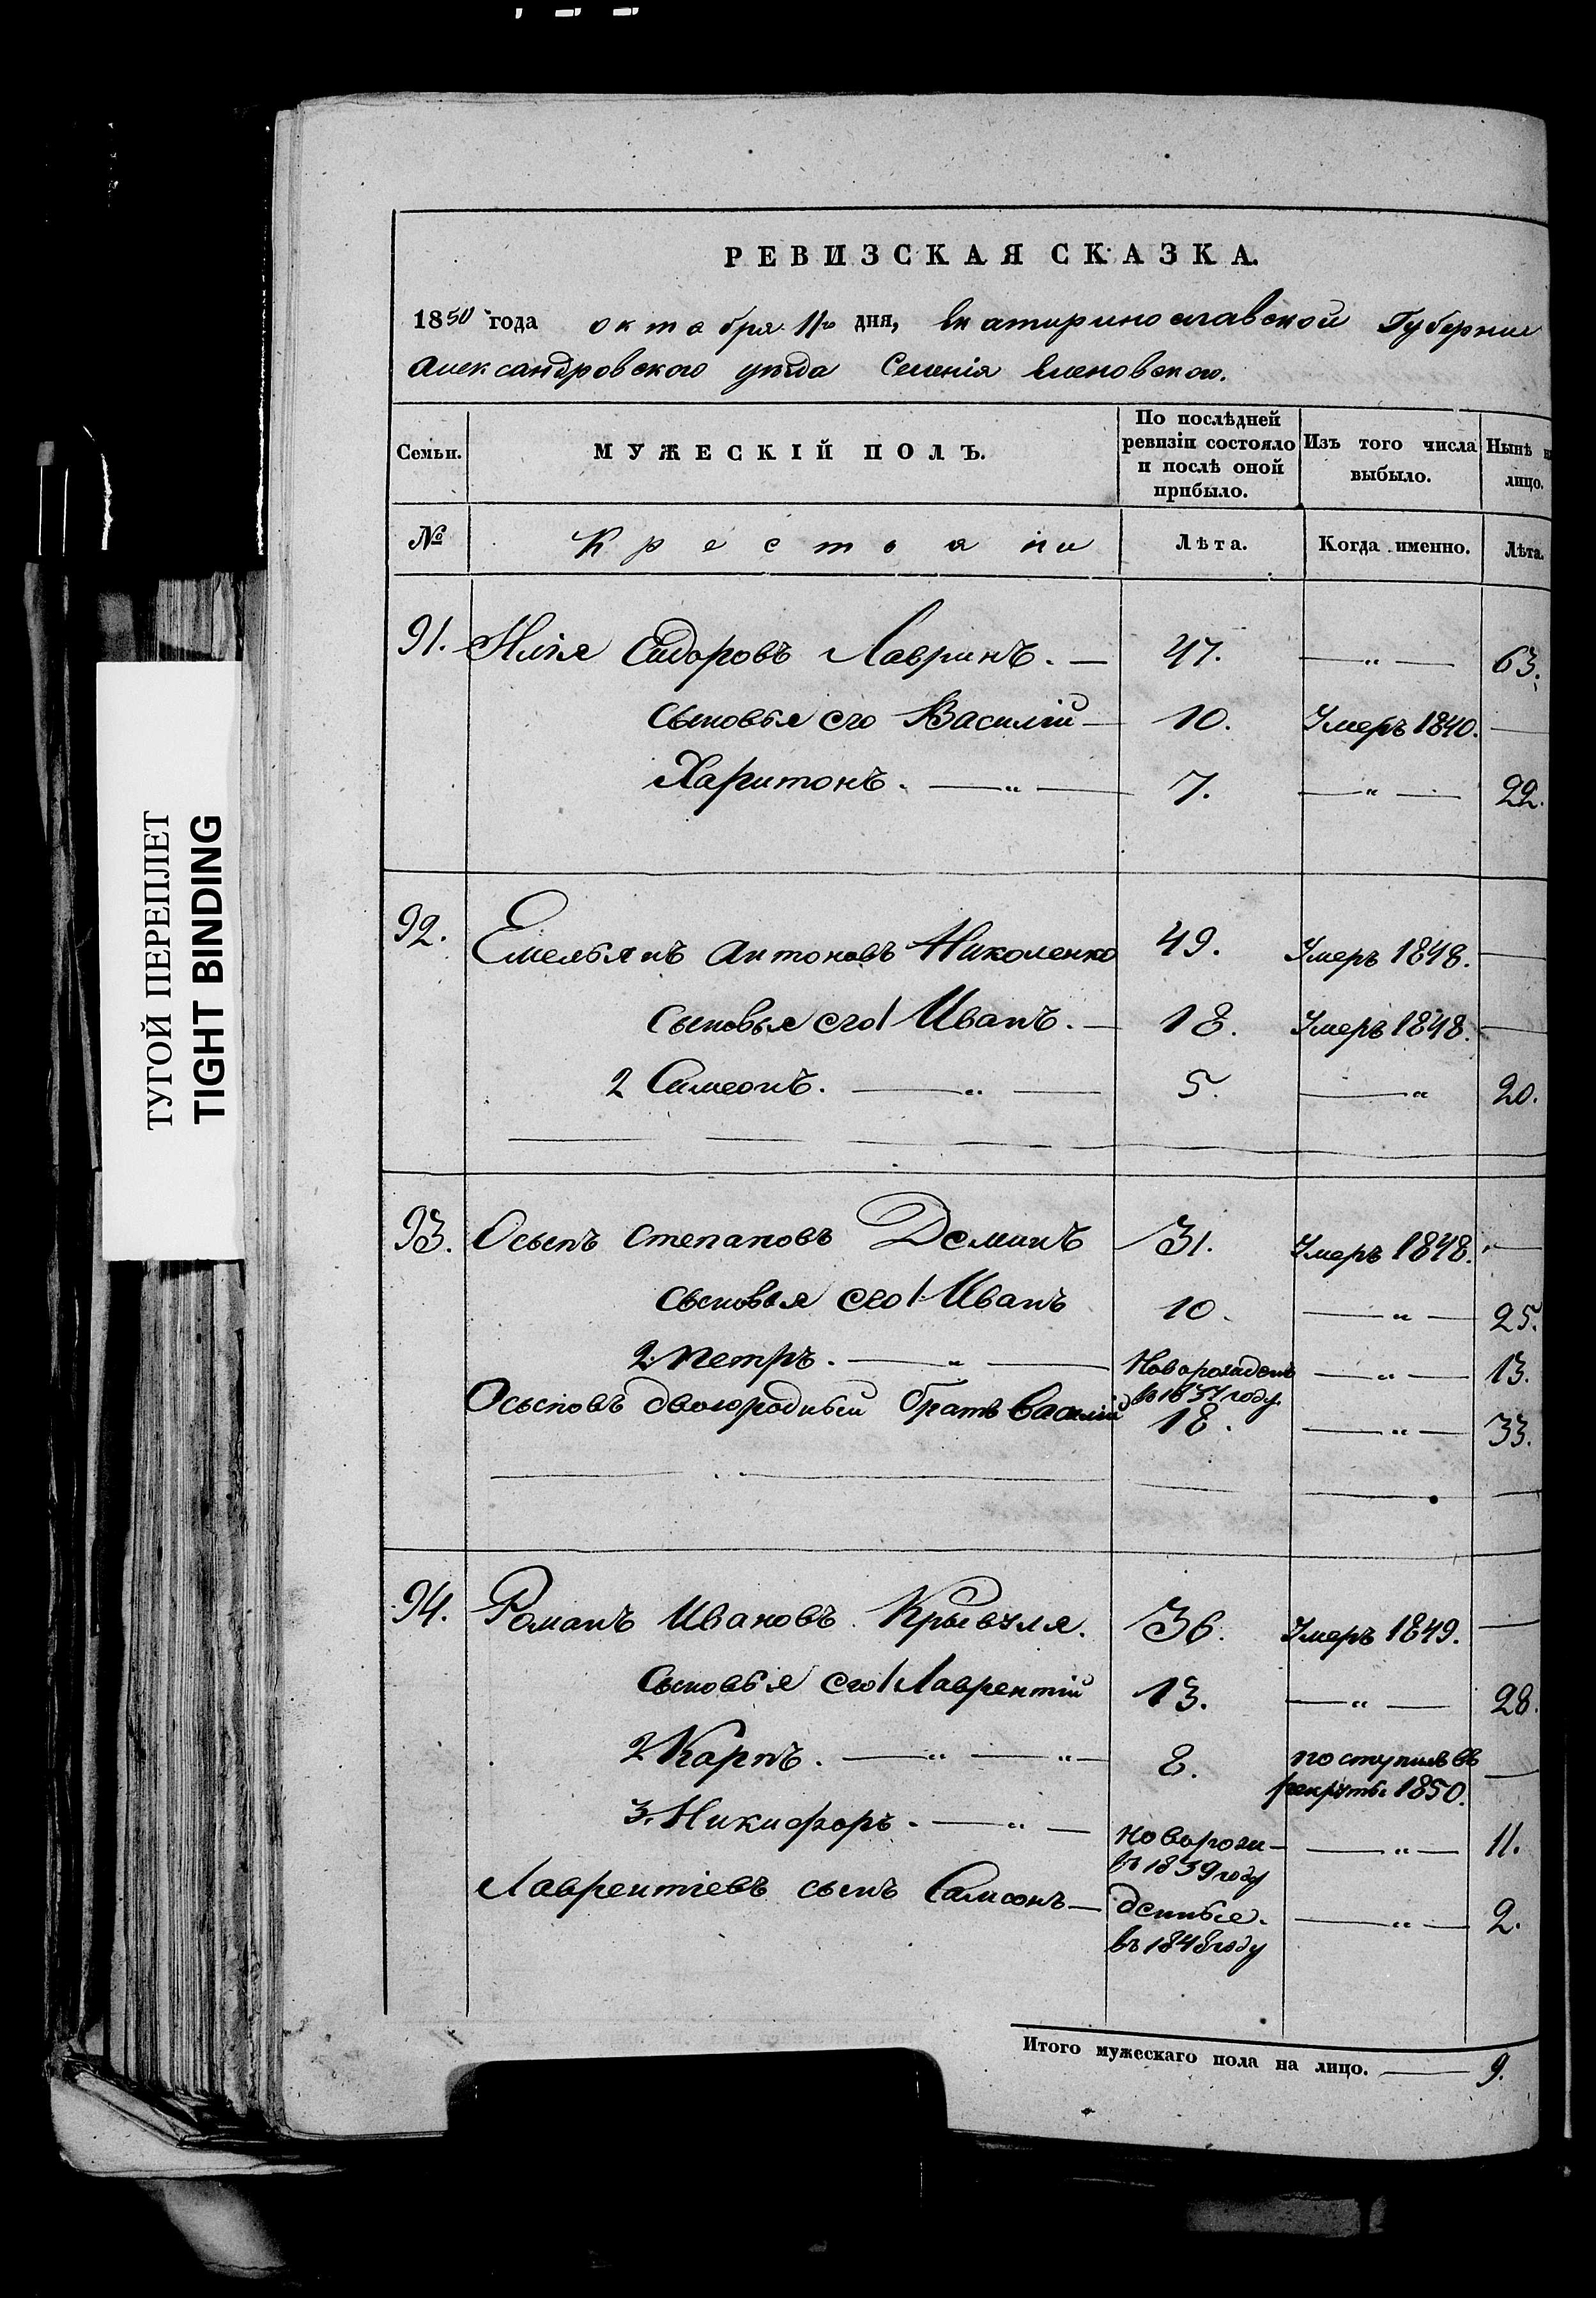 ТУГОЙ ПЕРЕПЛЕТ
TIGHT BINDING
РЕВИЗСКАЯ СКАЗКА.
1850 года октября 11го дня, Екатиринославской Губернии
Александровского уѣзда Селенія Еленовского.
Семьи.
МУЖЕСКІЙ ПОЛЪ.
По послѣдней ревизіи состояло и послѣ оной прибыло.
Изъ того числа выбыло.
Нынѣ на лицо.
№
Крестьяни
Лѣта.
Когда именно.
Лѣта.
91. Сидоровъ Лавринъ. — 47. — „ — 63.
Сыновья его Василій — 10. Умеръ 1840. —
Харитонъ. — „ — 7. — „ — 22.
92. Емельянъ Антоновъ Николенко 49. Умеръ 1848. —
Сыновья его 1 Иванъ. — 18. Умеръ 1848. —
2 Симеонъ. — „ — 5. — „ 20.
93. Осыпъ Степановъ Деминъ 31. Умеръ 1848. —
Сыновья его 1 Иванъ 10. — „ — 25.
2. Петръ. — „ — Новорожденъ въ 1837 году. — „ — 13.
Осыповъ двоюродный братъ Василій 18. — „ — 33.
94. Романъ Ивановъ Крывуля. 36. Умеръ 1849. —
Сыновья его 1 Лаврентій 13. — „ — 28.
2 Карпъ. — „ — „ — 8. поступилъ въ рекруты 1850. —
3. Никифоръ. — „ — новорож- въ 1839 году — „ — 11.
Лаврентіевъ сынъ Самсонъ — денные. въ 1848 году — „ — 2.
Итого мужескаго пола на лицо. — 9.